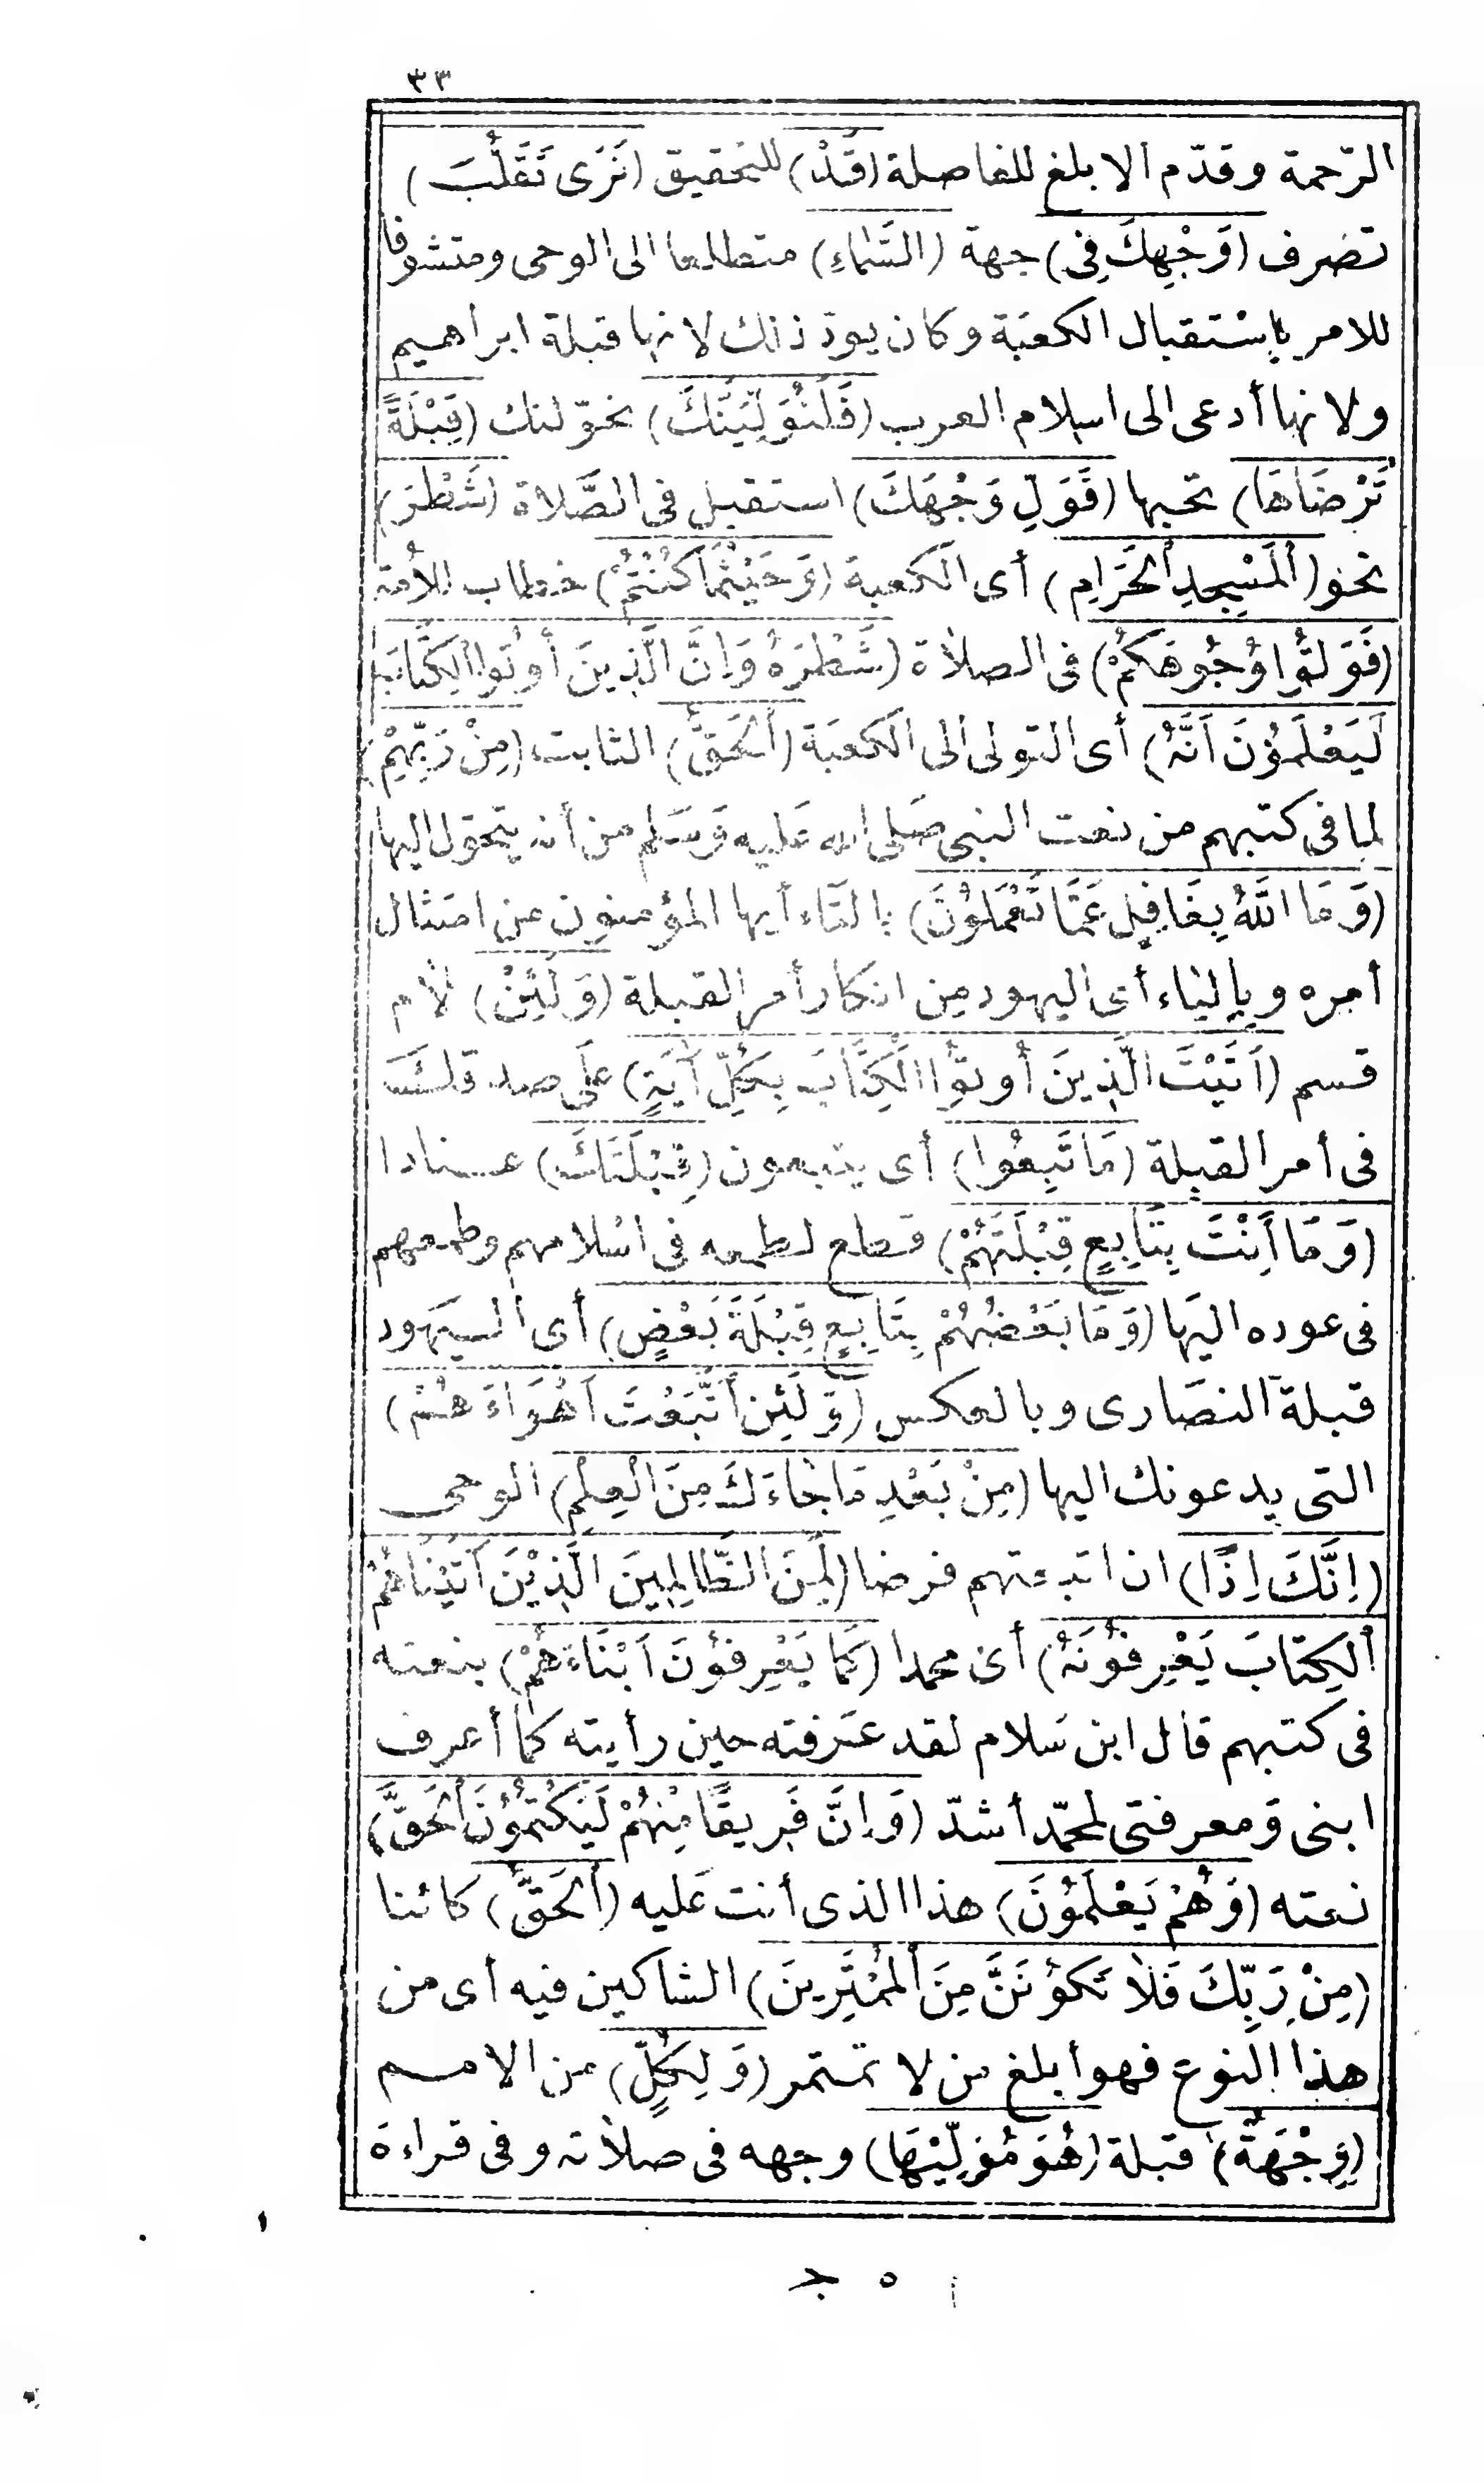 ٣٣
الرّحمة وقدّم الابلغ للفاصلة (قَدْ) للتحقيق (نَرٰى تَقَلُّبَ)
تصرف (وَجْهِكَ فِى) جهة (السَّمَاءِ) متطلعا الى الوحى ومتشوفا
للامر باستقبال الكعبة وكان يودّ ذلك لانها قبلة ابراهيم
ولانها أدعى الى اسلام العرب (فَلَنُوَلِّيَنَّكَ) نحوّلنك (قِبْلَةً
تَرْضَاهَا) تحبها (فَوَلِّ وَجْهَكَ) استقبل فى الصَّلاة (شَطْرَ)
نحو (الْمَسْجِدِ الْحَرَامِ) أى الكعبة (وَحَيْثُمَا كُنْتُمْ) خطاب للأمة
(فَوَلُّوا وُجُوهَكُمْ) فى الصلاة (شَطْرَهُ وَاِنَّ الَّذِينَ أُوتُوا الْكِتَابَ
لَيَعْلَمُونَ اَنَّهُ) أى التولى الى الكعبة (الْحَقُّ) الثابت (مِنْ رَبِّهِمْ)
لما فى كتبهم من نعت النبى صَلى الله عَليه وَسَلم من أنه يتحول اليها
(وَمَا اللّٰهُ بِغَافِلٍ عَمَّا تَعْمَلُونَ) بالتاء أيها المؤمنون من امتثال
أمره وبالياء أى اليهود من انكار أمر القبلة (وَلَئِنْ) لام
قسم (اَتَيْتَ الَّذِينَ أُوتُوا الْكِتَابَ بِكُلِّ آيَةٍ) على صدقك
فى أمر القبلة (مَا تَبِعُوا) أى يتبعون (قِبْلَتَكَ) عنادا
(وَمَا أَنْتَ بِتَابِعٍ قِبْلَتَهُمْ) قطع لطمعه فى اسْلامهم وطمعهم
فى عوده اليها (وَمَا بَعْضُهُمْ بِتَابِعٍ قِبْلَةَ بَعْضٍ) أى اليهود
قبلة النصَارى وبالعكس (وَلَئِنِ اتَّبَعْتَ اَهْوَاءَهُمْ)
التى يدعونك اليها (مِنْ بَعْدِ مَا جَاءَكَ مِنَ الْعِلْمِ) الوحى
(اِنَّكَ اِذًا) ان اتبعتهم فرضا (لَمِنَ الظَّالِمِينَ الَّذِيْنَ آتَيْنَاهُمُ
الْكِتَابَ يَعْرِفُونَهُ) أى محمدا (كَمَا يَعْرِفُونَ اَبْنَاءَهُمْ) بنعته
فى كتبهم قال ابن سَلام لقد عَرفته حين رأيته كما أعرف
ابنى وَمعرفتى لمحمّد أشدّ (وَاِنَّ فَرِيقًا مِنْهُمْ لَيَكْتُمُونَ الْحَقَّ)
نعته (وَهُمْ يَعْلَمُونَ) هذا الذى أنت عَليه (الْحَقُّ) كائنا
(مِنْ رَبِّكَ فَلاَ تَكُونَنَّ مِنَ الْمُمْتَرِينَ) الشاكين فيه أى من
هذا النوع فهو أبلغ من لا تمتمر (وَلِكُلٍّ) من الامم
(وِجْهَةٌ) قبلة (هُوَ مُوَلِّيْهَا) وجهه فى صلاته وفى قراءة
٥ ج
١